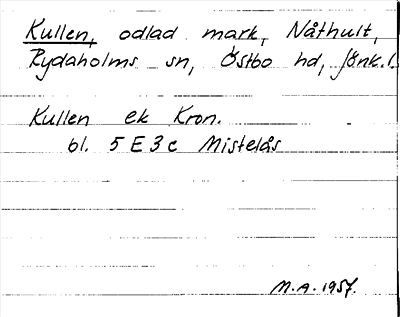 Kullen, odlad mark, Nåthult,
Rydaholms sn, Östbo hd, Jönk.l.
Kullen ek Kron.
bl. 5 E 3 c Mistelås
M.A. 1957.